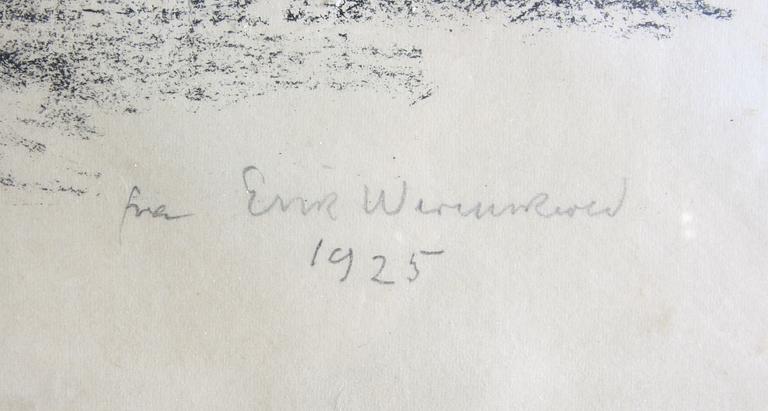 fra Erik Werenskiold
1925